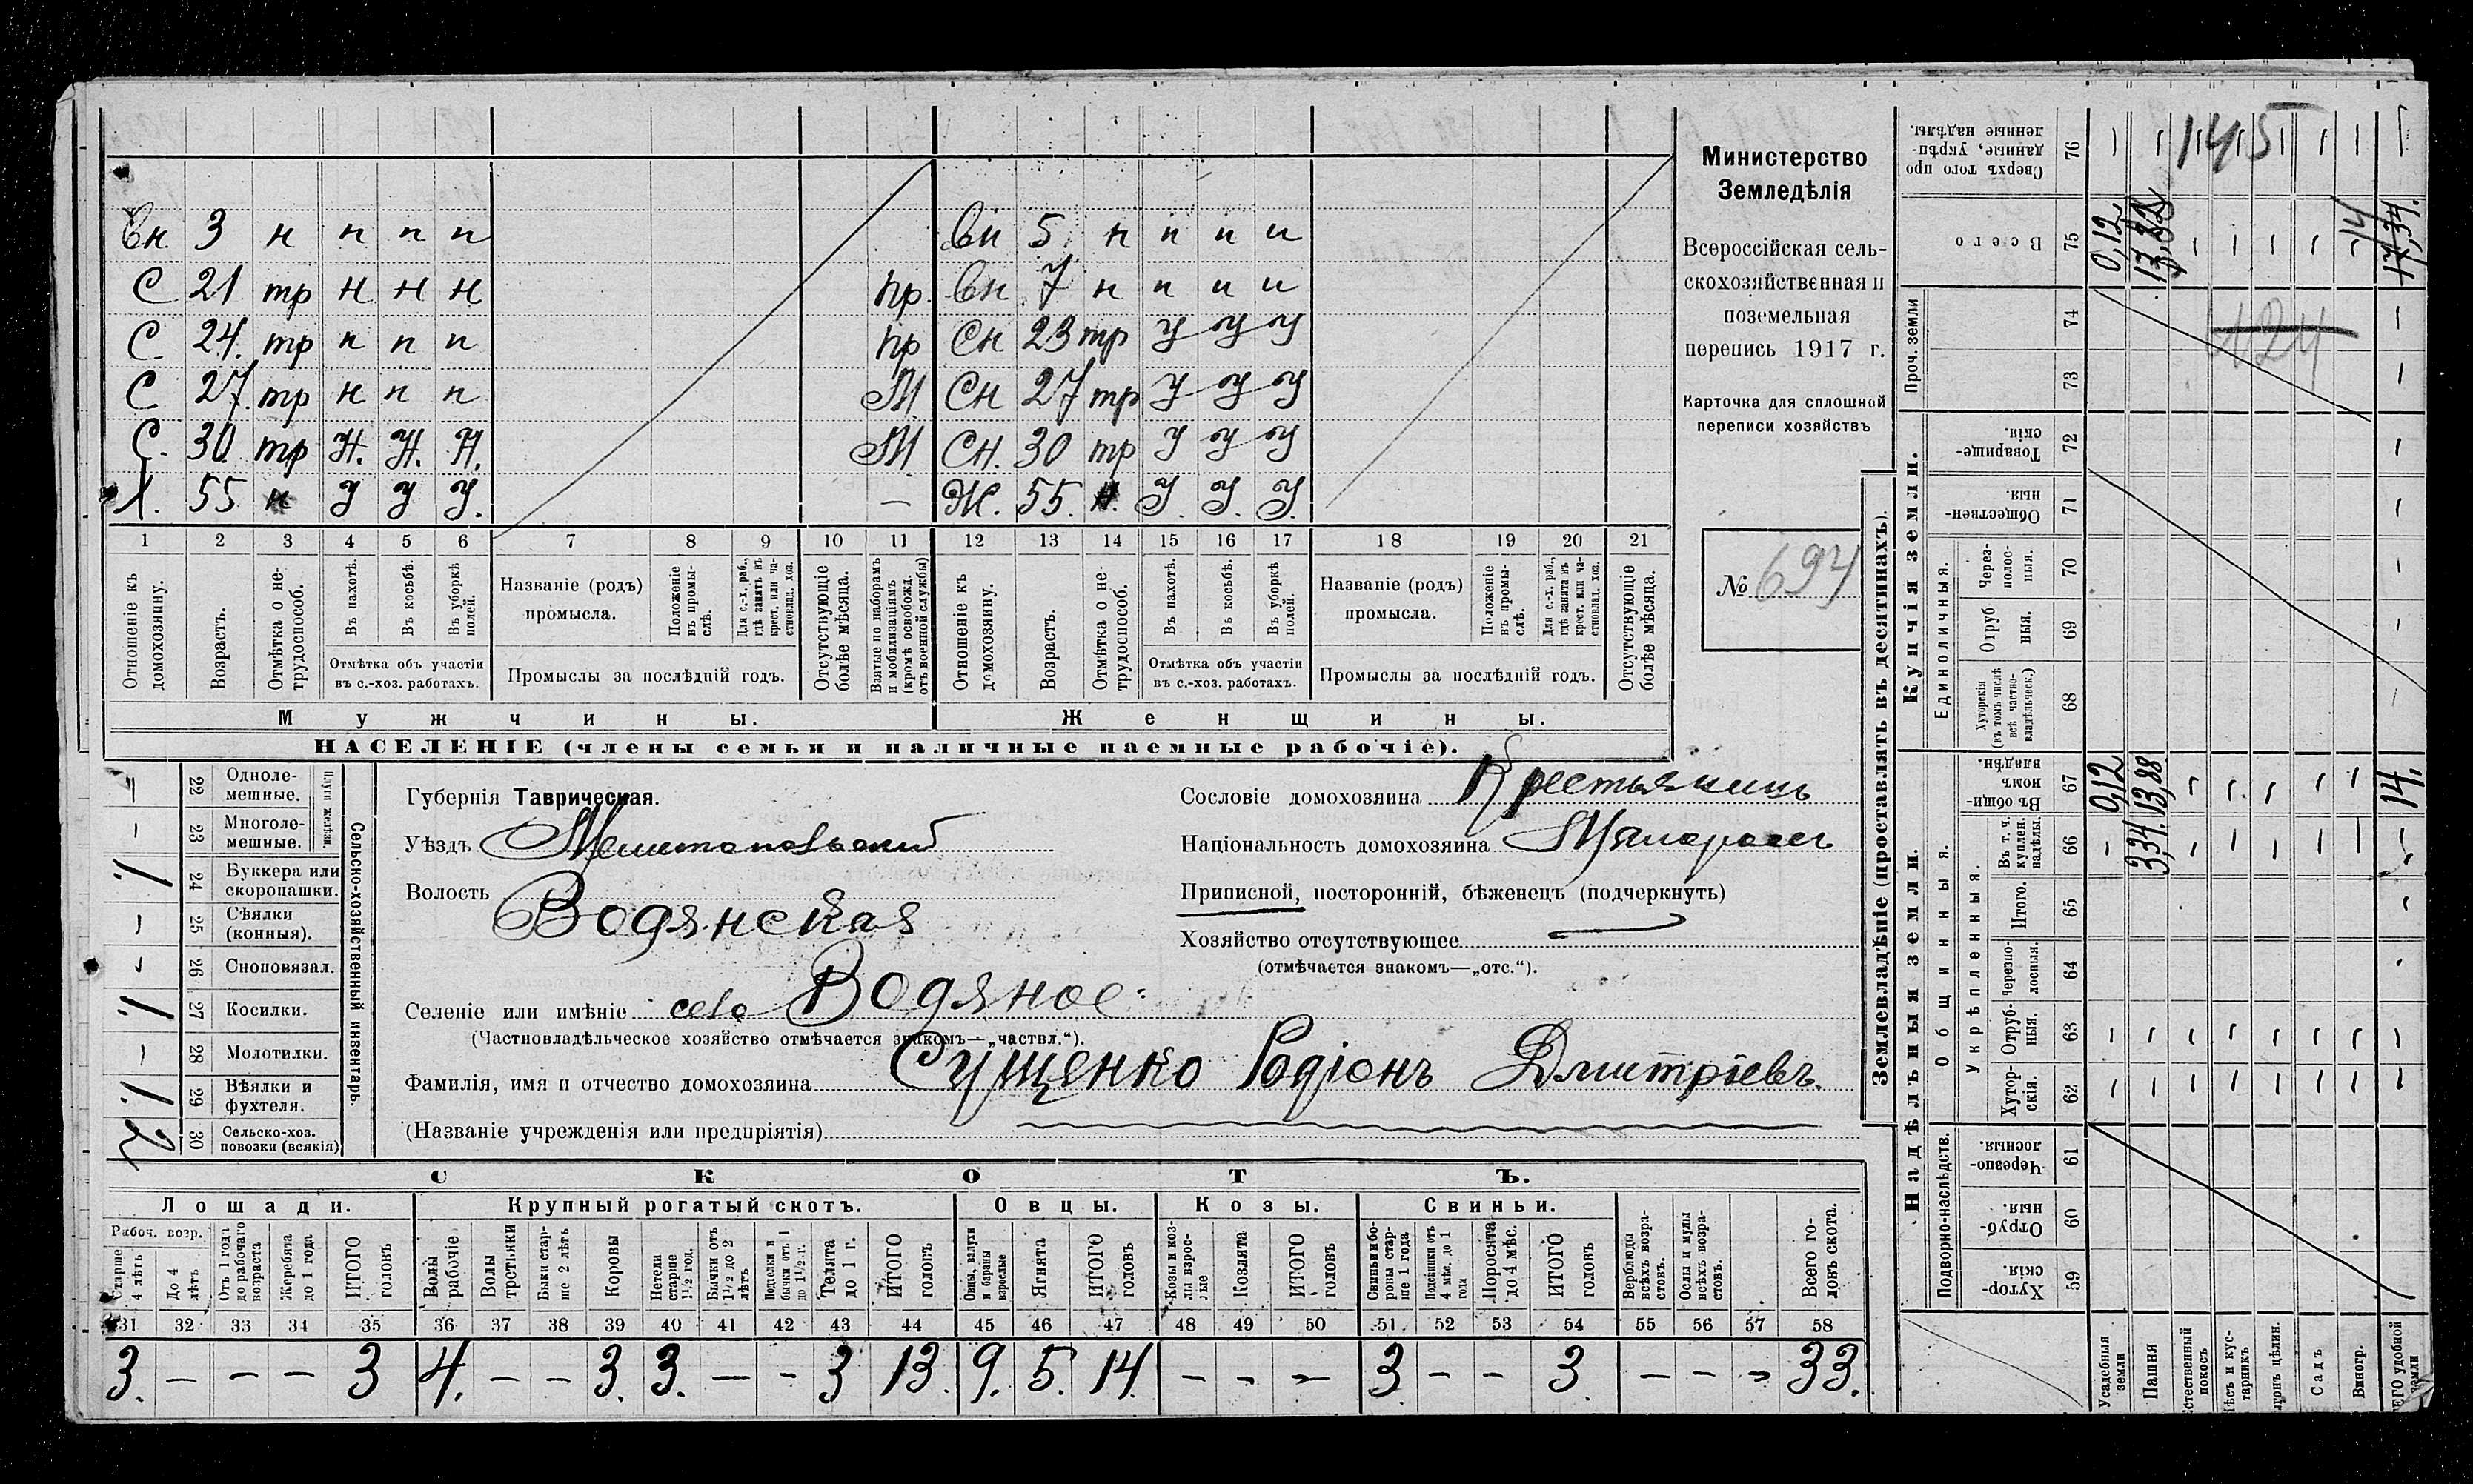 Вн 3 н п п п
Вн 5 н п п п
С 21 тр Н Н Н пр.
Вн 7 н п п п
С 24 тр н п п пр
Сн 23 тр У У У
С 27 тр н п п М
Сн 27 тр У У У
С. 30 тр Н. Н. Н. М
Сн. 30 тр У У У
Х. 55 н У У У. —
Ж. 55. н. У. У. У.
1 2 3 4 5 6 7 8 9 10 11 12 13 14 15 16 17 18 19 20 21
Отношеніе къ домохозяину.
Возрастъ.
Отмѣтка о нетрудоспособ.
Въ пахотѣ.
Въ косьбѣ.
Въ уборкѣ полей.
Отмѣтка объ участіи
въ с.-хоз. работахъ.
Названіе (родъ)
промысла.
Положеніе въ промыслѣ.
Для с.-х. раб., гдѣ занятъ въ крест. или частновлад. хоз.
Промыслы за послѣдній годъ.
Отсутствующіе болѣе мѣсяца.
Взятые по наборамъ и мобилизаціямъ (кромѣ освобожд. отъ военной службы)
Отношеніе къ домохозяину.
Возрастъ.
Отмѣтка о нетрудоспособ.
Въ пахотѣ.
Въ косьбѣ.
Въ уборкѣ полей.
Отмѣтка объ участіи
въ с.-хоз. работахъ.
Названіе (родъ)
промысла.
Положеніе въ промыслѣ.
Для с.-х. раб., гдѣ занята въ крест. или частновлад. хоз.
Промыслы за послѣдній годъ.
Отсутствующіе болѣе мѣсяца.
Мужчины.
Женщины.
НАСЕЛЕНІЕ (члены семьи и наличные наемные рабочіе).
Министерство
Земледѣлія
Всероссійская сель-
скохозяйственная и
поземельная
перепись 1917 г.
Карточка для сплошной
переписи хозяйствъ
№ 694
Сельско-хозяйственный инвентарь.
Плуги желѣзн.
— 22 Одноле-
мешные.
— 23 Многоле-
мешные.
1. 24 Буккера или
скоропашки.
— 25 Сѣялки
(конныя).
- 26 Сноповязал.
1. 27 Косилки.
— 28 Молотилки.
1. 29 Вѣялки и
фухтеля.
2 30 Сельско-хоз.
повозки (всякія)
Губернія Таврическая.
Уѣздъ Мелитопольскій
Волость Водянская
Селеніе или имѣніе село Водяное.
(Частновладѣльческое хозяйство отмѣчается знакомъ—„частвл.“).
Фамилія, имя и отчество домохозяина Сущенко Родіонъ Дмитріевъ.
(Названіе учрежденія или предпріятія)
Сословіе домохозяина Крестьянинъ
Національность домохозяина Малороссъ
Приписной, посторонній, бѣженецъ (подчеркнуть)
Хозяйство отсутствующее
(отмѣчается знакомъ—„отс.“).
СКОТЪ.
Лошади. Крупный рогатый скотъ. Овцы. Козы. Свиньи.
Рабоч. возр.
Старше 4 лѣтъ
До 4 лѣтъ
Отъ 1 года до рабочаго возраста
Жеребята до 1 года
ИТОГО головъ
Волы рабочіе
Волы третьяки
Быки старше 2 лѣтъ
Коровы
Нетели старше 1½ год.
Бычки отъ 1½ до 2 лѣтъ
Подтелки и бычки отъ 1 до 1½ г.
Телята до 1 г.
ИТОГО головъ
Овцы, валухи и бараны взрослые
Ягнята
ИТОГО головъ
Козы и козлы взрослые
Козлята
ИТОГО головъ
Свиньи и боровы старше 1 года
Подсвинки отъ 4 мѣс. до 1 года
Поросята до 4 мѣс.
ИТОГО головъ
Верблюды всѣхъ возрастовъ.
Ослы и мулы всѣхъ возрастовъ.
Всего головъ скота.
31 32 33 34 35 36 37 38 39 40 41 42 43 44 45 46 47 48 49 50 51 52 53 54 55 56 57 58
3. — — — 3 4. — — 3. 3. — - 3 13. 9. 5. 14. — - — 3 - - 3. — - - 33.
Землевладѣніе (проставлять въ десятинахъ).
Надѣльныя земли.
Купчія земли.
Проч. земли
Подворно-наслѣдств.
Общинныя.
Укрѣпленныя.
Единоличныя.
Хутор-
скія. 59
Отруб-
ныя. 60
Черезпо-
лосныя. 61
Хутор-
скія. 62
Отруб-
ныя. 63
Черезпо-
лосныя. 64
Итого. 65
Въ т. ч. куплен. надѣлы. 66
Въ общин-
номъ
владѣн. 67
Хуторскія (въ томъ числѣ всѣ частно-владѣльческ.) 68
Отруб
ныя. 69
Через-
полос-
ныя. 70
Обществен-
ныя. 71
Товарище-
скія. 72
73
74
Всего 75
Сверхъ того про
данные, укрѣп-
ленные надѣлы. 76
Усадебныя земли
0,12 0,12
Пашня
3,34. 13,88 13,88
Естественный покосъ
Лѣсъ и кус-
тарникъ
Выгонъ цѣлин.
Садъ
Виногр.
ВСЕГО удобной земли
14,
145
124